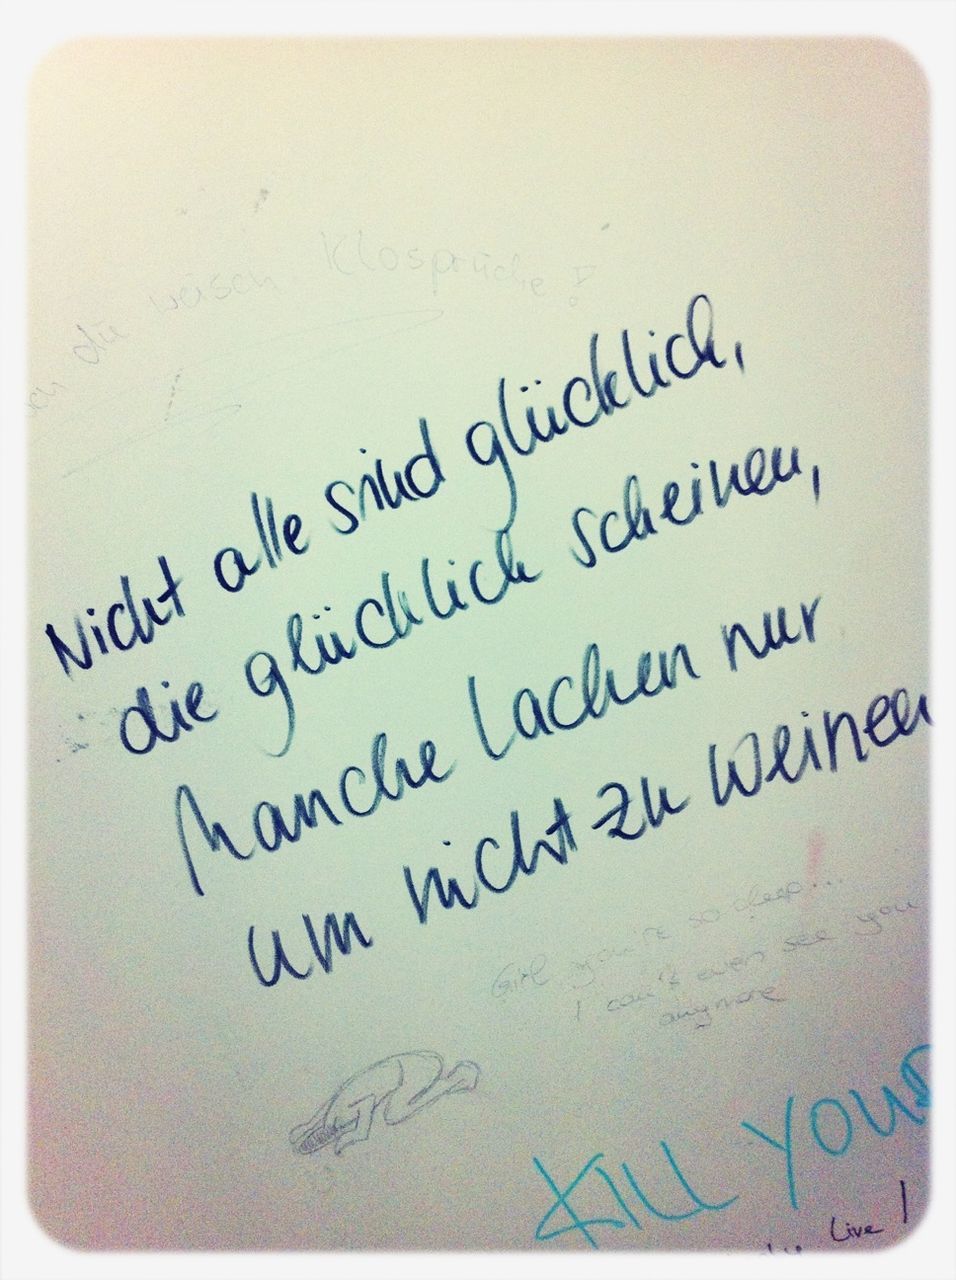 die weisch Klosprüche!
Nicht alle sind glücklich,
die glücklich scheinen,
Manche lachen nur
um nicht zu weinen
Girl you're so deep...
I can't even see you
anymore
KILL YOUR
Live!